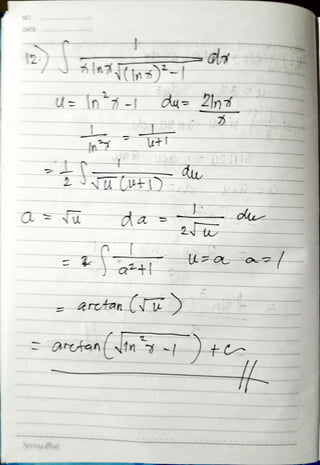 NO
DATE
12.) ∫ 1 / (x ln x √((ln x)² - 1)) dx
u = ln² x - 1 du = 2 ln x / x
1 / ln² x = 1 / (u+1)
= 1/2 ∫ 1 / (√u (u+1)) du
a = √u da = 1 / (2√u) du
= ∫ 1 / (a² + 1) u = a a = 1
= arctan (√u)
= arctan (√(ln² x - 1)) + c